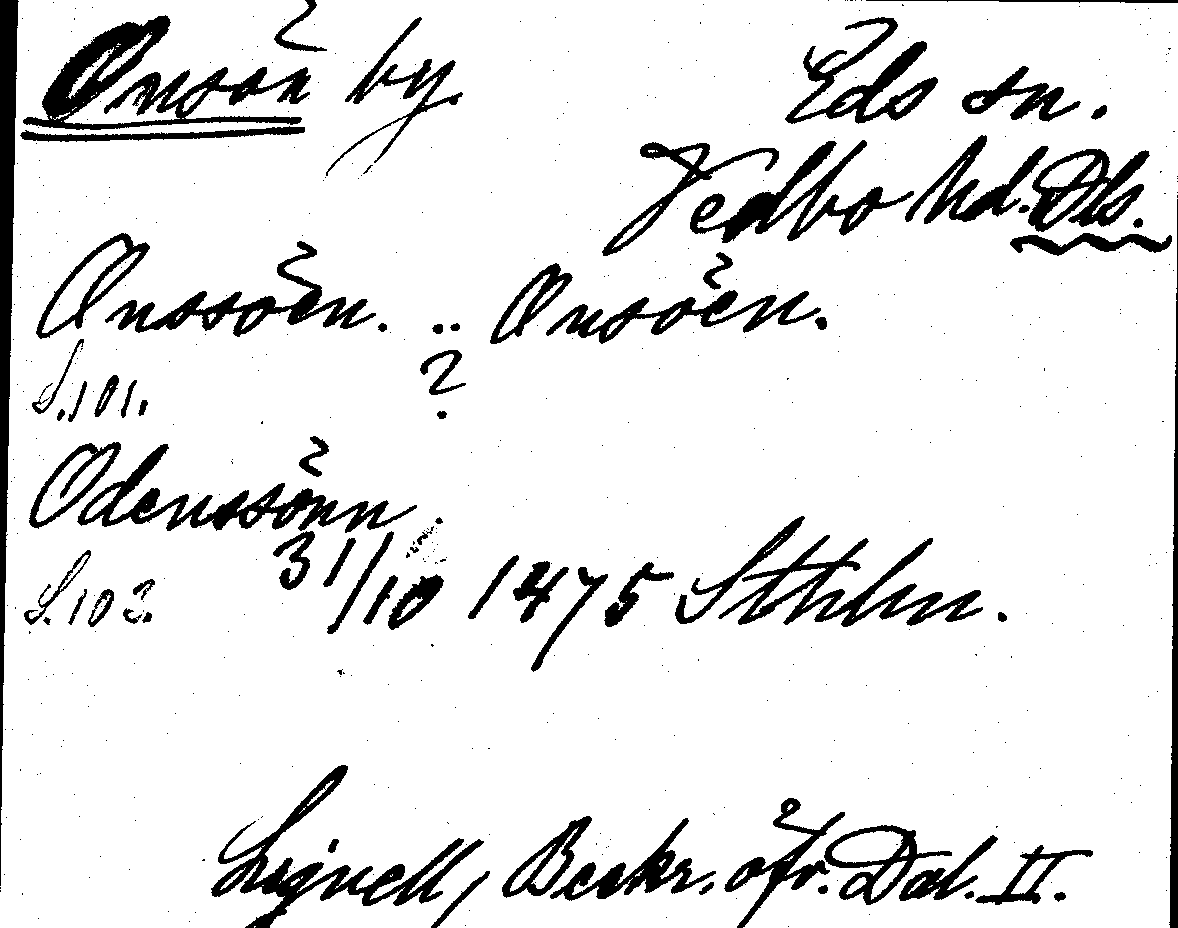 Onsön by. Eds sn.
Vedbo hd. Dls.
Onssöen. .. Onsöen.
S. 101. ?
Odenssönn.
S. 102. 31/10 1475 Sthlm.
Lignell, Beskr. öfv. Dal. II.